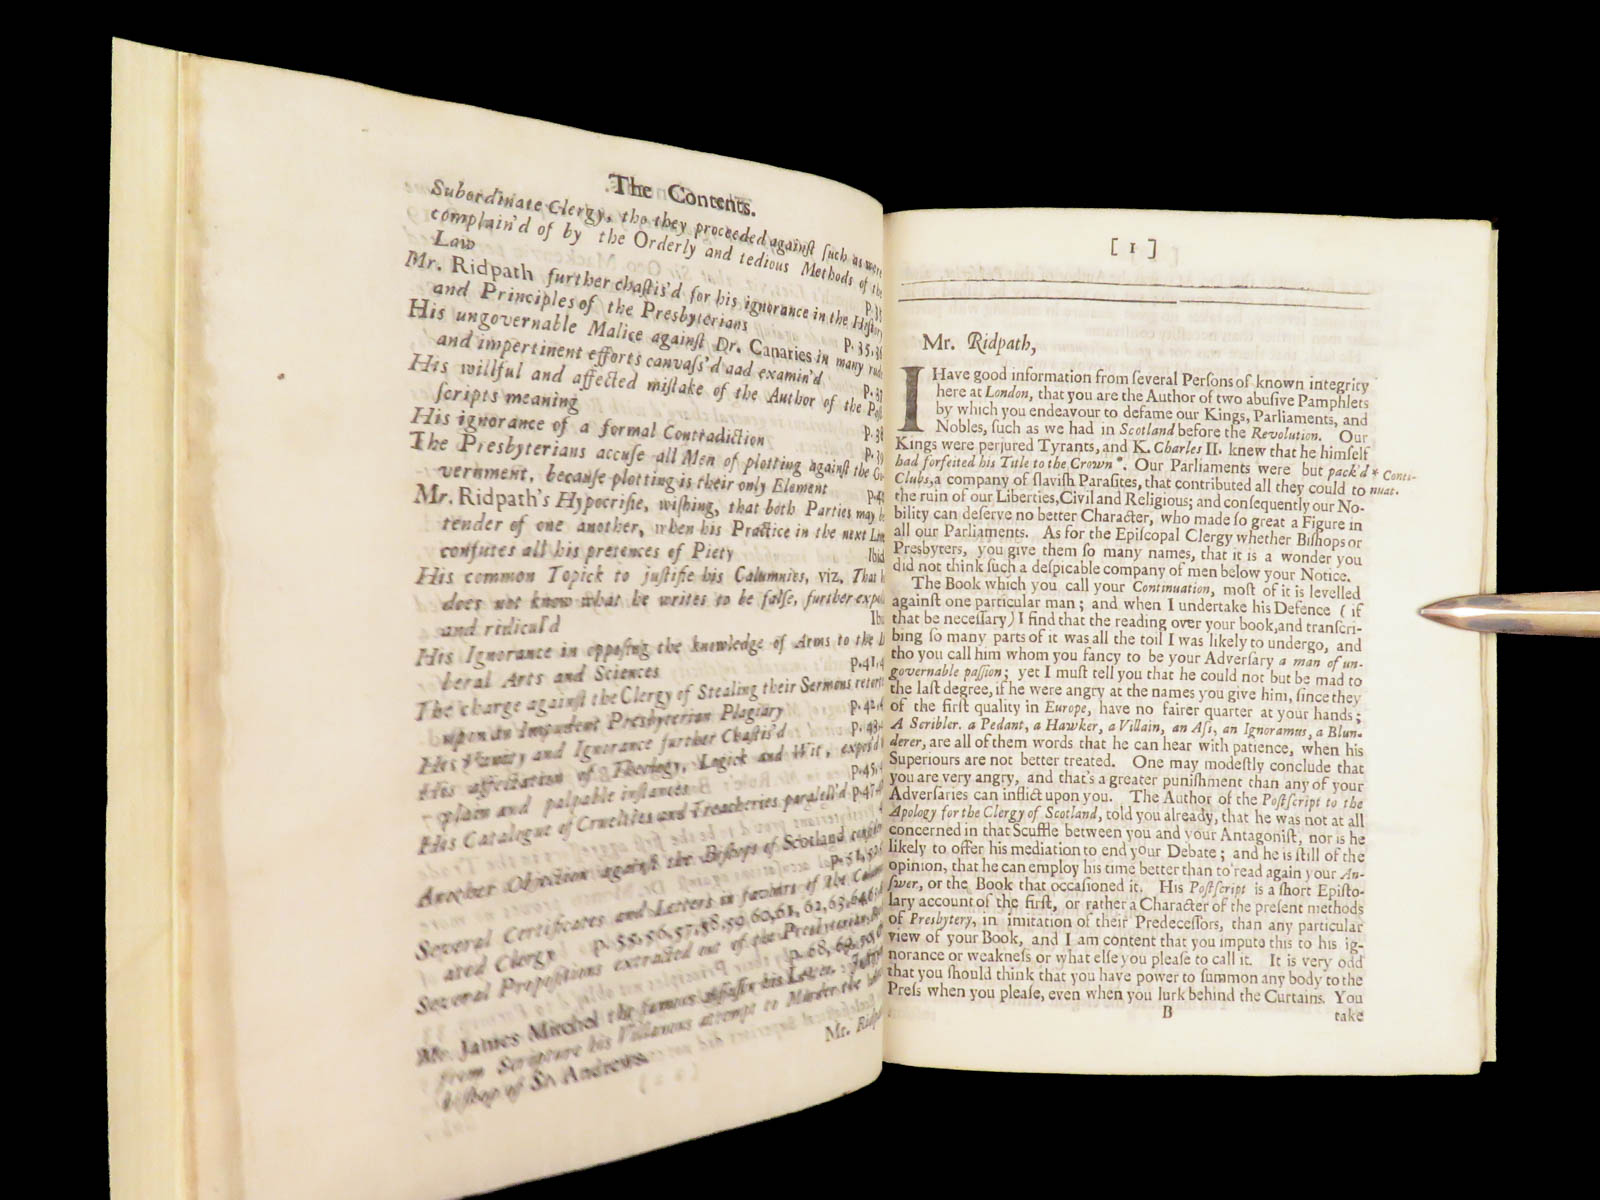 The Contents.
Subordinate Clergy, tho they proceeded againſt ſuch as were
complain'd of by the Orderly and tedious Methods of the
Law
Mr. Ridpath further chaſtis'd for his ignorance in the Hiſtory
and Principles of the Presbyterians P. 35,36
His ungovernable Malice againſt Dr. Canaries in many rude
and impertinent efforts canvaſs'd aad examin'd P. 37
His willful and affected miſtake of the Author of the Poſt-
ſcripts meaning P. 38
His ignorance of a formal Contradiction P. 39
The Presbyterians accuſe all Men of plotting againſt the Go-
vernment, becauſe plotting is their only Element
Mr. Ridpath's Hypocriſie, wiſhing, that both Parties may be
tender of one another, when his Practice in the next Line
confutes all his pretences of Piety Ibid
His common Topick to juſtifie his Calumnies, viz. That he
does not know what he writes to be falſe, further expos'd
and ridicul'd
His Ignorance in oppoſing the knowledge of Arms to the Li-
beral Arts and Sciences p.41,
The charge againſt the Clergy of Stealing their Sermons retorted
upon an Impudent Presbyterian Plagiary p. 42,
His Vanity and Ignorance further Chaſtis'd p. 43,
His affectation of Theology, Logick and Wit, expos'd
plain and palpable inſtances p.45,
His Catalogue of Cruelties and Treacheries paralell'd p.47
Another Objection againſt the Biſhops of Scotland
p. 51, 52
Several Certificates and Letters in favours of the
ated Clergy p. 55,56,57,58,59,60,61, 62,63,64,
Several Propoſitions extracted out of the Presbyterian
p. 68, 69,
Mr. James Mitchel the famous aſſaſſin his Letter,
from Scripture his Villanous attempt to Murder the
biſhop of St. Andrews.
Mr. Ridpath
[ 1 ]
Mr. Ridpath,
I Have good information from ſeveral Perſons of known integrity
here at London, that you are the Author of two abuſive Pamphlets
by which you endeavour to defame our Kings, Parliaments, and
Nobles, ſuch as we had in Scotland before the Revolution. Our
Kings were perjured Tyrants, and K. Charles II. knew that he himſelf
had forfeited his Title to the Crown*. Our Parliaments were but pack'd * Conti-
Clubs,a company of ſlaviſh Paraſites, that contributed all they could to nuat.
the ruin of our Liberties,Civil and Religious; and conſequently our No-
bility can deſerve no better Character, who made ſo great a Figure in
all our Parliaments. As for the Epiſcopal Clergy whether Biſhops or
Presbyters, you give them ſo many names, that it is a wonder you
did not think ſuch a deſpicable company of men below your Notice.
The Book which you call your Continuation, moſt of it is levelled
againſt one particular man; and when I undertake his Defence ( if
that be neceſſary) I find that the reading over your book,and tranſcri-
bing ſo many parts of it was all the toil I was likely to undergo, and
tho you call him whom you fancy to be your Adverſary a man of un-
governable paſſion; yet I muſt tell you that he could not but be mad to
the laſt degree, if he were angry at the names you give him, ſince they
of the firſt quality in Europe, have no fairer quarter at your hands;
A Scribler. a Pedant, a Hawker, a Villain, an Aſs, an Ignoramus, a Blun-
derer, are all of them words that he can hear with patience, when his
Superiours are not better treated. One may modeſtly conclude that
you are very angry, and that's a greater puniſhment than any of your
Adverſaries can inflict upon you. The Author of the Poſtſcript to the
Apology for the Clergy of Scotland, told you already, that he was not at all
concerned in that Scuffle between you and your Antagoniſt, nor is he
likely to offer his mediation to end your Debate; and he is ſtill of the
opinion, that he can employ his time better than to read again your An-
ſwer, or the Book that occaſioned it. His Poſtſcript is a ſhort Epiſto-
lary account of the firſt, or rather a Character of the preſent methods
of Presbytery, in imitation of their Predeceſſors, than any particular
view of your Book, and I am content that you impute this to his ig-
norance or weakneſs or what elſe you pleaſe to call it. It is very odd
that you ſhould think that you have power to ſummon any body to the
Preſs when you pleaſe, even when you lurk behind the Curtains. You
B take